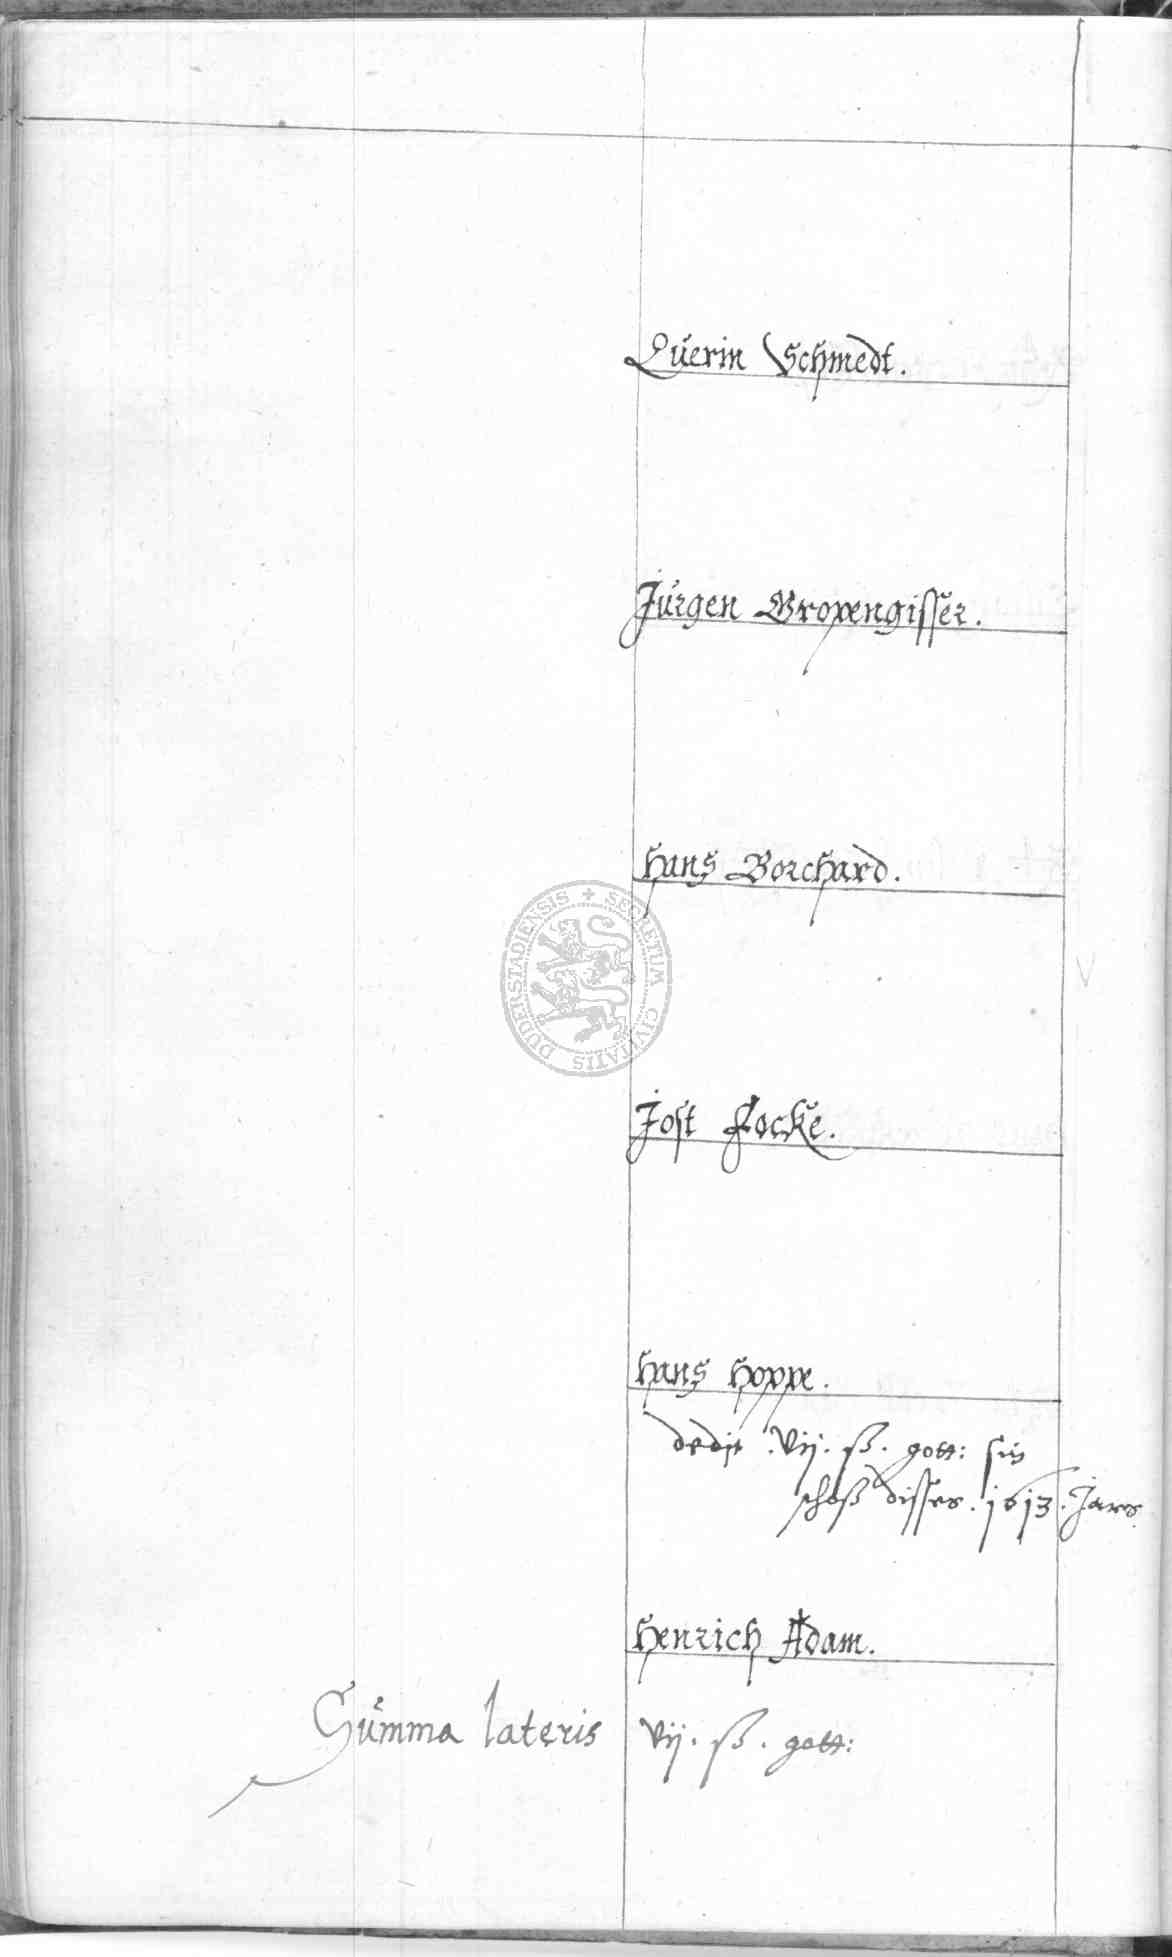 Querin Schmedt.
Jürgen Gropengisser.
Hans Borchard.
SECRETUM CIVITATIS DUDERSTADIENSIS
Jost Focke.
Hans Hoppe.
dedit vij. ß. gott: sin
schoß disses. 1613. Jars.
Henrich Adam.
Summa lateris vij. ß. gott: